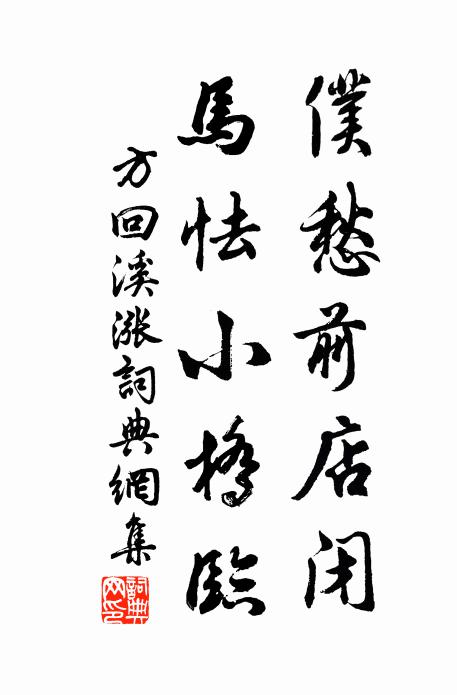 僕愁前店閉
馬怯小橋臨
方回溪漲詞典網集
詞典网印